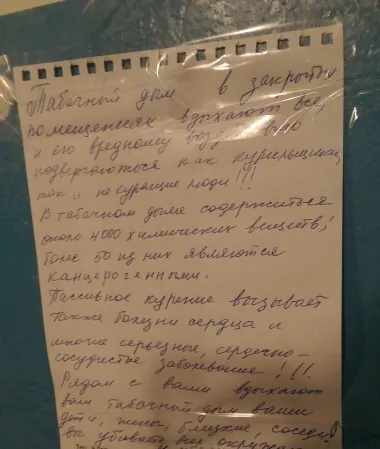 Табачный дым в закрытых
помещениях вдыхают все,
и его вредному воздействию
подвергаються как курильщики,
так и не курящие люди!!!
В табачном дыме содержиться
около 4000 химических веществ,
более 50 из них являются
канцерогенными.
Пассивное курение вызывает
также болезни сердца и
многие серьезные, сердечно-
сосудистые заболевание!!!
Рядом с вами вдыхают
ваш табачный дым ваши
дети, жены, близкие, соседи!
Вы убиваете всех